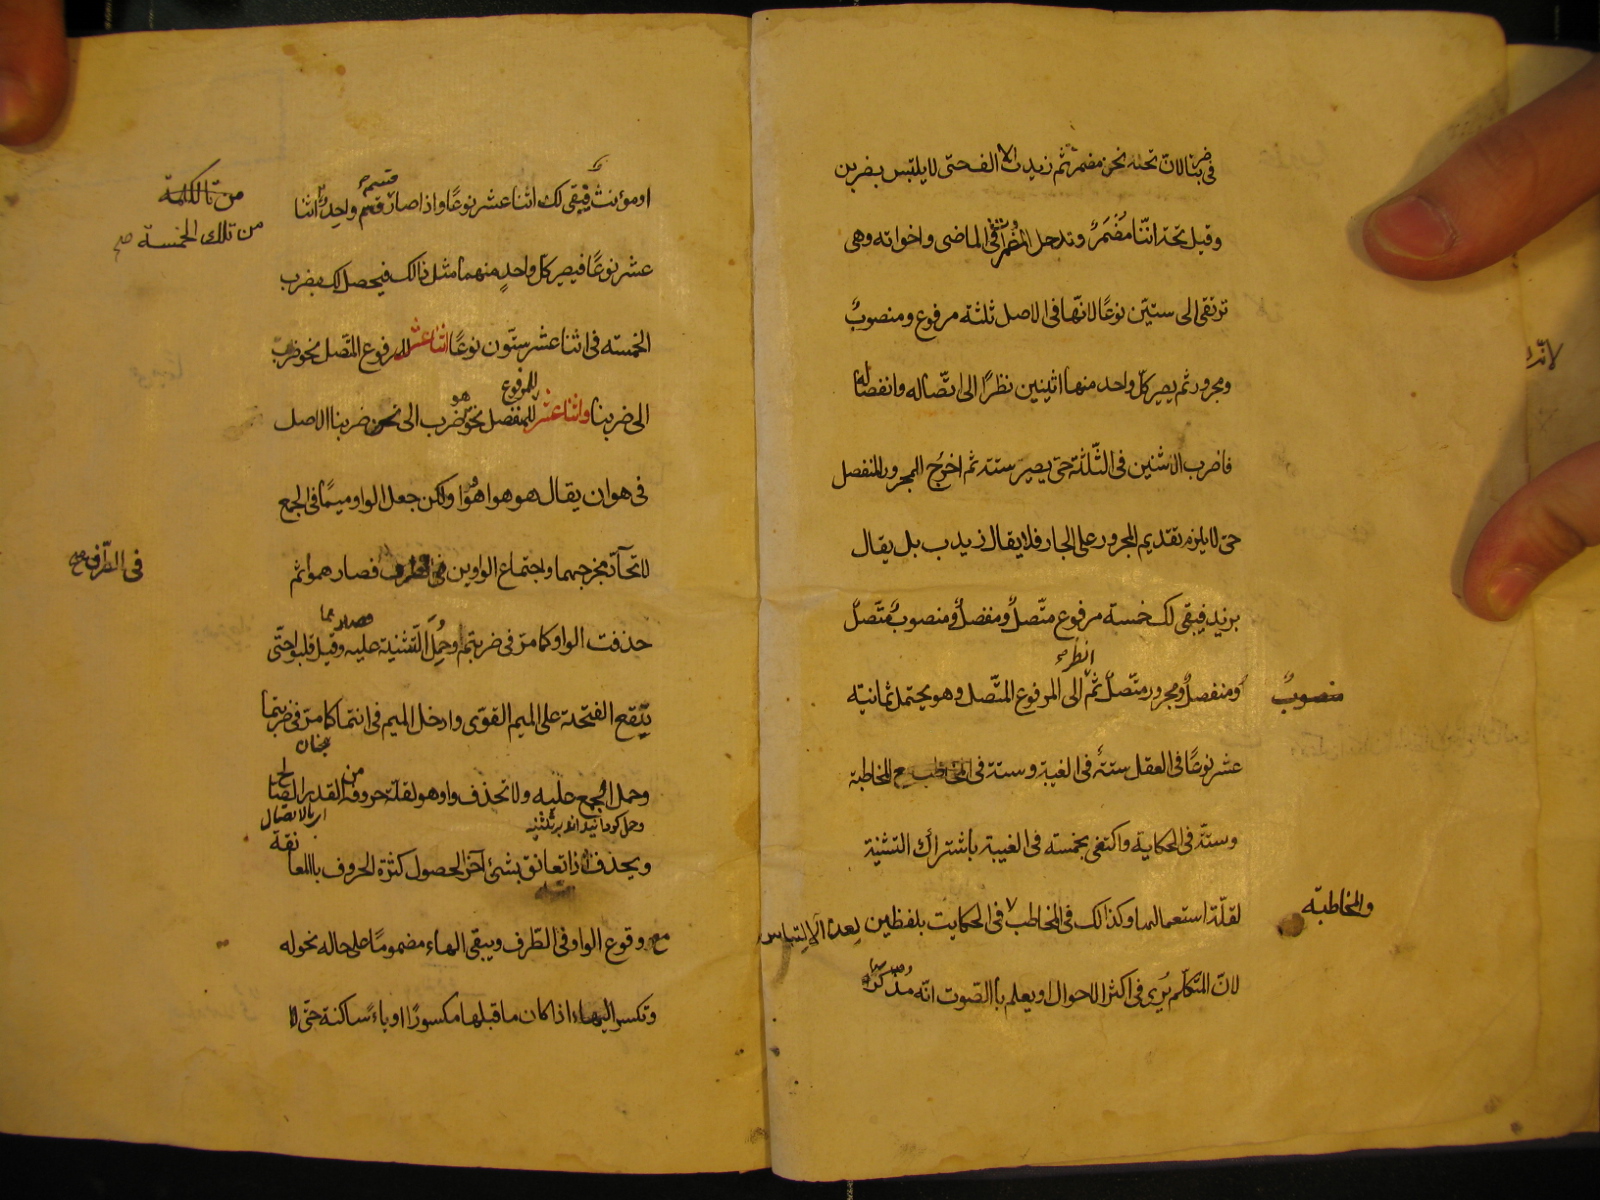 فى ضربنا لانّ تحته نحن مضمر ثم زيدت الالف حتى لا يلتبس بضربن
وقيل تحته انّنا مُضْمَرٌ وتدخل المُضْمَرَاتُ فى الماضى واخواته وهى
ترتقى الى ستّين نوعًا لانّها فى الاصل ثلثة مرفوع ومنصوبٌ
ومجرور ثم يصير كلّ واحد منها اثنين نظرًا الى اتّصاله وانفصاله
فاضرب الاثنين فى الثّلثة حتى يصير ستة ثم اخرِج المجرور المنفصل
حتى لا يلزم تقديم المجرور على الجار فلا يقال زيد ب بل يقال
بزيد فيبقى لك خمسة مرفوع متّصلٌ ومنفصلٌ ومنصوبٌ متّصلٌ
انظر
ومنفصلٌ ومجرور متّصلٌ ثمّ الى المرفوع المتّصل وهو يحتمل ثمانية
منصوبٌ
عشر نوعًا فى العقل ستةً فى الغيبة وستة فى المخاطب مع المخاطبة
وستّة فى الحكاية واكتفى بخمسته فى الغيبة باشتراك التثنية
لقلّة استعمالهما وكذالك فى المخاطب فى الحكايت بلفظين لعدم الالتباس
والمخاطبة
لانّ المتكلّم يُرى فى اكثر الاحوال او يعلم باالصّوت انّه مذكّر
لانّه
او مؤنث فيبقى لك اثنا عشر نوعًا واذا صار قسم واحد اثنا
قسم
من تا لكلمة
من تلك الخمسة صح
عشر نوعًا فيصير كل واحدٍ منهما مثل ذالك فيحصل لك بضرب
الخمسه فى اثنا عشر ستّون نوعًا اثنا عشر للمرفوع المتّصل نحو ضرب
الى ضربنا واثنا عشر للمنفصل نحو هو ضرب الى نحن ضربنا الاصل
للمرفوع
فى هو ان يقال هو هوا هُوُا ولكن جعل الواو ميمًا فى الجمع
لاتحآد مخرجهما واجتماع الواوين فى الطرف فصار هموا ثم
فى الطّرف صح
حذفت الواو كما مرّ فى ضربتم وحُمِلَ التّثنية عليه وقيل قلبوا حتّى
فصار هما
يتّقع الفتحة على الميم القوّى وادخل الميم فى انتما كما مرّ فى ضربتما
وحمل الجمع عليه ولا تحذف واو هو لقلّة حروفه من القدر الصّالح
ويحذف اذا تعانق بشئ آخر لحصول كثرة الحروف باالمعانقة
مع وقوع الواو فى الطّرف ويبقى الهاء مضمومًا على حاله نحو له
وتكسر الهاء اذا كان ما قبلها مكسورًا او ياءً ساكنة حتّى لا